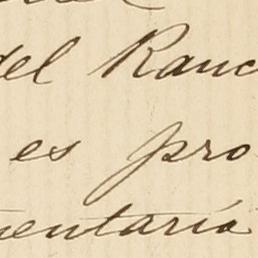 del Ranc
es pro
mentaría